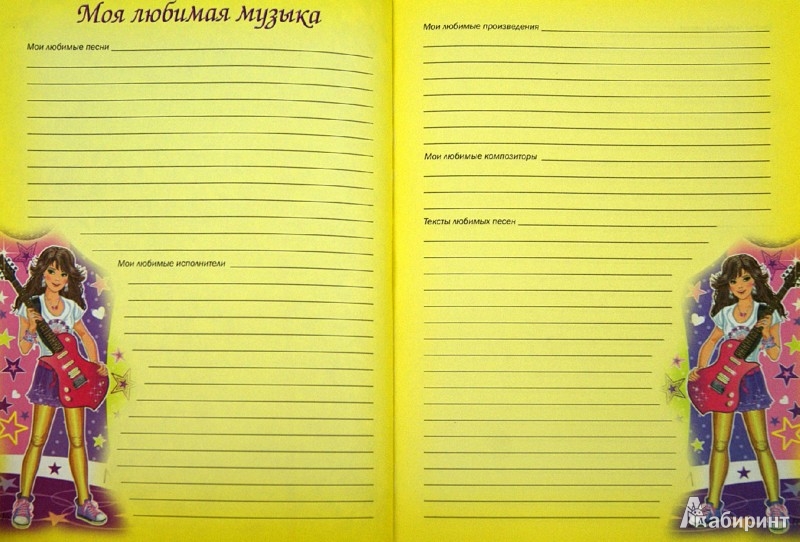 Моя любимая музыка
Мои любимые песни
Мои любимые исполнители
Мои любимые произведения
Мои любимые композиторы
Тексты любимых песен
Лабиринт